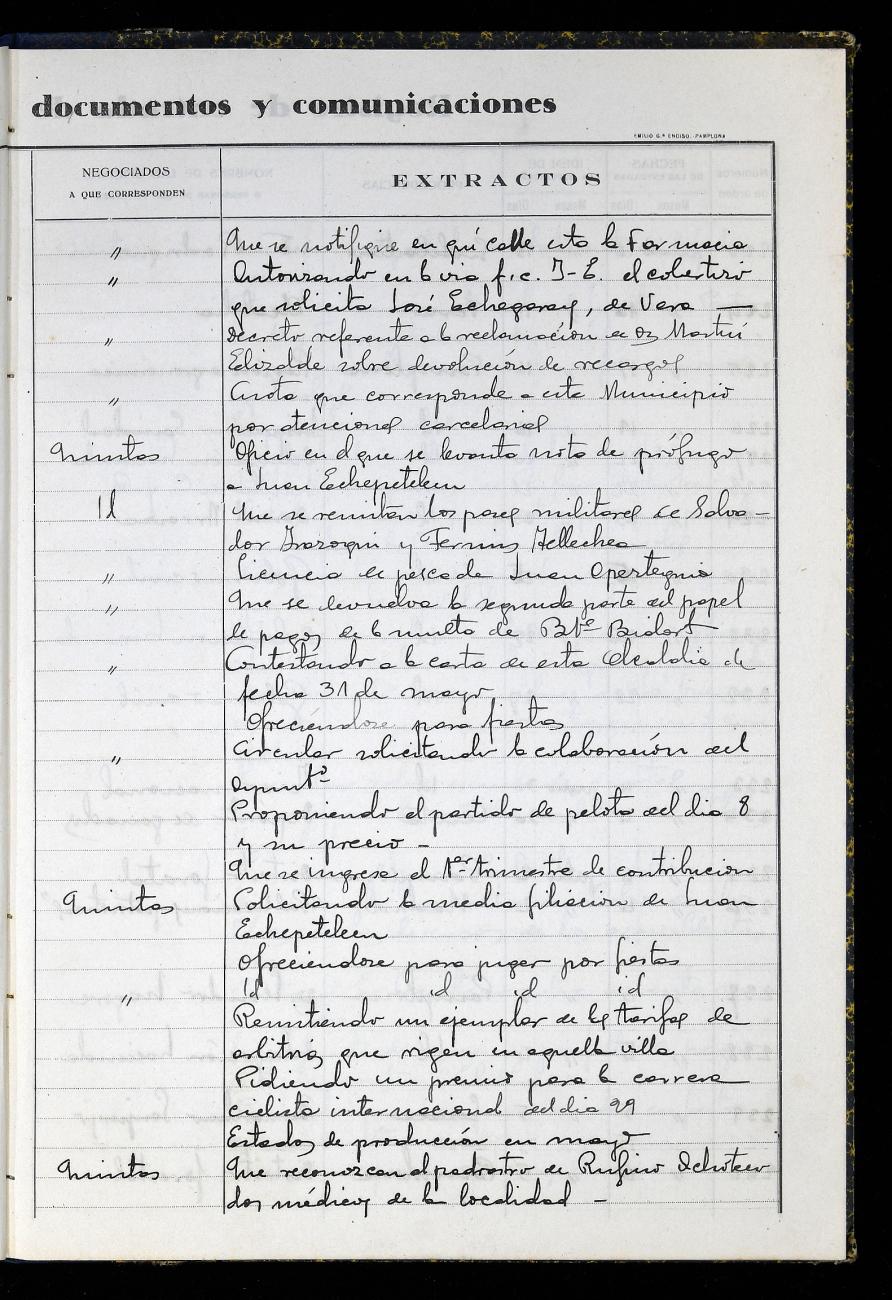 documentos y comunicaciones
EMILIO G.ª ENCISO.-PAMPLONA
NEGOCIADOS
A QUE CORRESPONDEN
EXTRACTOS
" Que se notifique en qué calle esta la Farmacia
" Autorizando en la via f.c. I-E. el cobertizo
que solicita José Echegaray, de Vera —
" Decreto referente a la reclamación de Martin
Elizalde sobre devolución de recargos
" Cuota que corresponde a este Municipio
por atenciones carcelarias
Quintas Oficio en el que se levanta nota de prófugo
a Juan Echepetelecu
Id Que se remitan los pases militares de Salva-
dor Irazoqui y Fermin Tellechea
" Licencia de pesca de Juan Aperteguia
" Que se devuelva la segunda parte del papel
de pagos de la multa de Bte Bidart
" Contestando a la carta de esta Alcaldia de
fecha 31 de mayo
Ofreciéndose para fiestas
" Circular solicitando la colaboración del
Ayuntº
Proponiendo el partido de pelota del dia 8
y su precio —
Que se ingrese el 1er trimestre de contribucion
Quintas Solicitando la media filiacion de Juan
Echepetelecu
Ofreciendose para jugar por fiestas
" Id id id id
Remitiendo un ejemplar de las tarifas de
arbitrios que rigen en aquella villa
Pidiendo un premio para la carrera
ciclista internacional del dia 29
Estados de producción en mayo
Quintas Que reconozcan al padrastro de Rufino Ochoteco
dos médicos de la localidad —